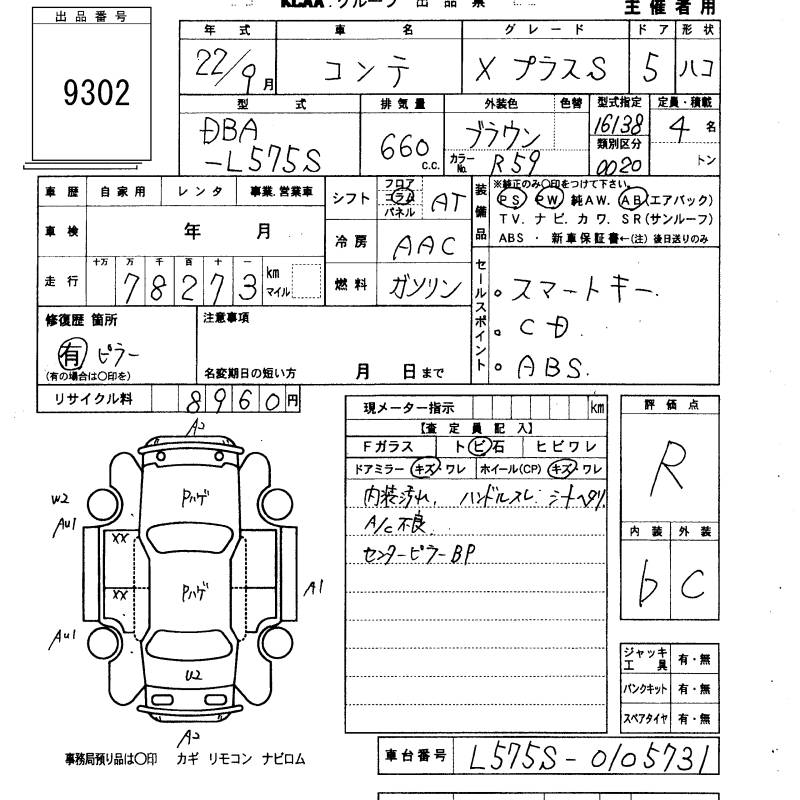 KCAA.グループ 出品票
主催者用
出品番号
9302
年式 車名 グレード ドア 形状
22/9月 コンテ X プラスS 5 ハコ
型式 排気量 外装色 色替 型式指定 定員・積載
DBA-L575S 660 c.c. ブラウン 16138 4名
カラーNo. R59 類別区分 0020 トン
車歴 自家用 レンタ 事業.営業車
シフト フロア コラム パネル AT
装備品 ※純正のみ〇印をつけて下さい。
PS PW 純AW. AB(エアバック)
TV. ナビ. カワ. SR(サンルーフ)
ABS ・ 新車保証書←(注) 後日送りのみ
車検 年 月
冷房 AAC
走行 十万 万 千 百 十 一
78273 km マイル
燃料 ガソリン
セールスポイント
。スマートキー.
。CD.
。ABS.
修復歴 箇所
有 ピラー
(有の場合は〇印を)
注意事項
名変期日の短い方 月 日まで
リサイクル料 8960円
現メーター指示 km
【査定員記入】
Fガラス トビ石 ヒビワレ
ドアミラー キズ・ワレ ホイール(CP) キズ・ワレ
内装汚れ, ハンドルスレ. シートヘタリ.
A/C不良.
センターピラーBP
評価点
R
内装 外装
b C
A2
Pハゲ
W2
AU1
XX
Pハゲ
XX
A1
AU1
U2
A2
ジャッキ工具 有・無
パンクキット 有・無
スペアタイヤ 有・無
事務局預り品は〇印 カギ リモコン ナビロム
車台番号 L575S-0105731